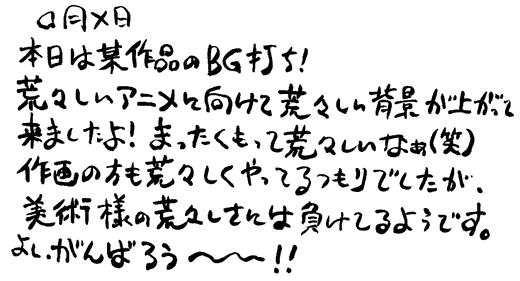 ○月×日
本日は某作品のBG打ち!
荒々しいアニメに向けて荒々しい背景が上がって
来ましたよ!まったくもって荒々しいなぁ(笑)
作画の方も荒々しくやってるつもりでしたが、
美術様の荒々しさには負けてるようです。
よし、がんばろう〜〜!!